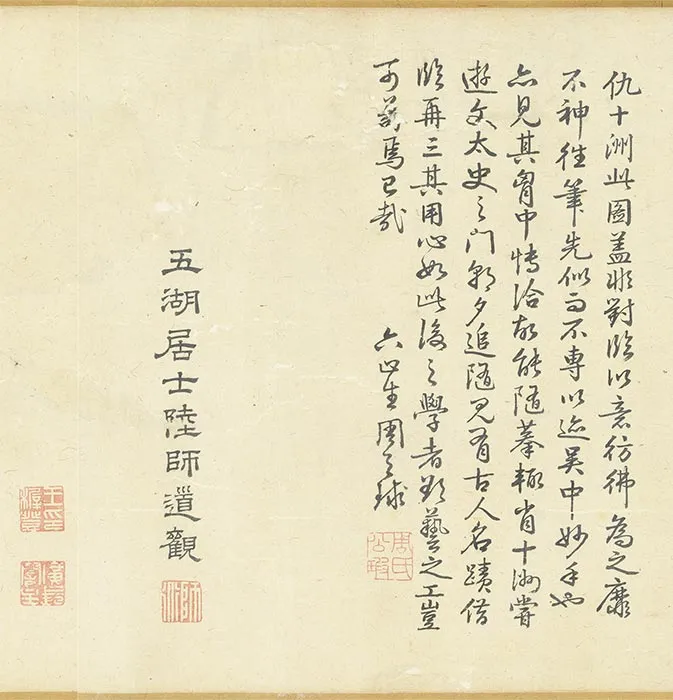 仇十洲此圖蓋非對臨以意彷彿為之靡
不神往筆先似而不專以迹吳中妙手也
亦見其胷中博洽故能隨摹輒肖十洲嘗
遊文太史之門朝夕追隨見有古人名蹟借
臨再三其用心如此後之學者欲藝之工豈
可苟焉已哉
六止生周天球
周氏公瑕
五湖居士陸師道觀